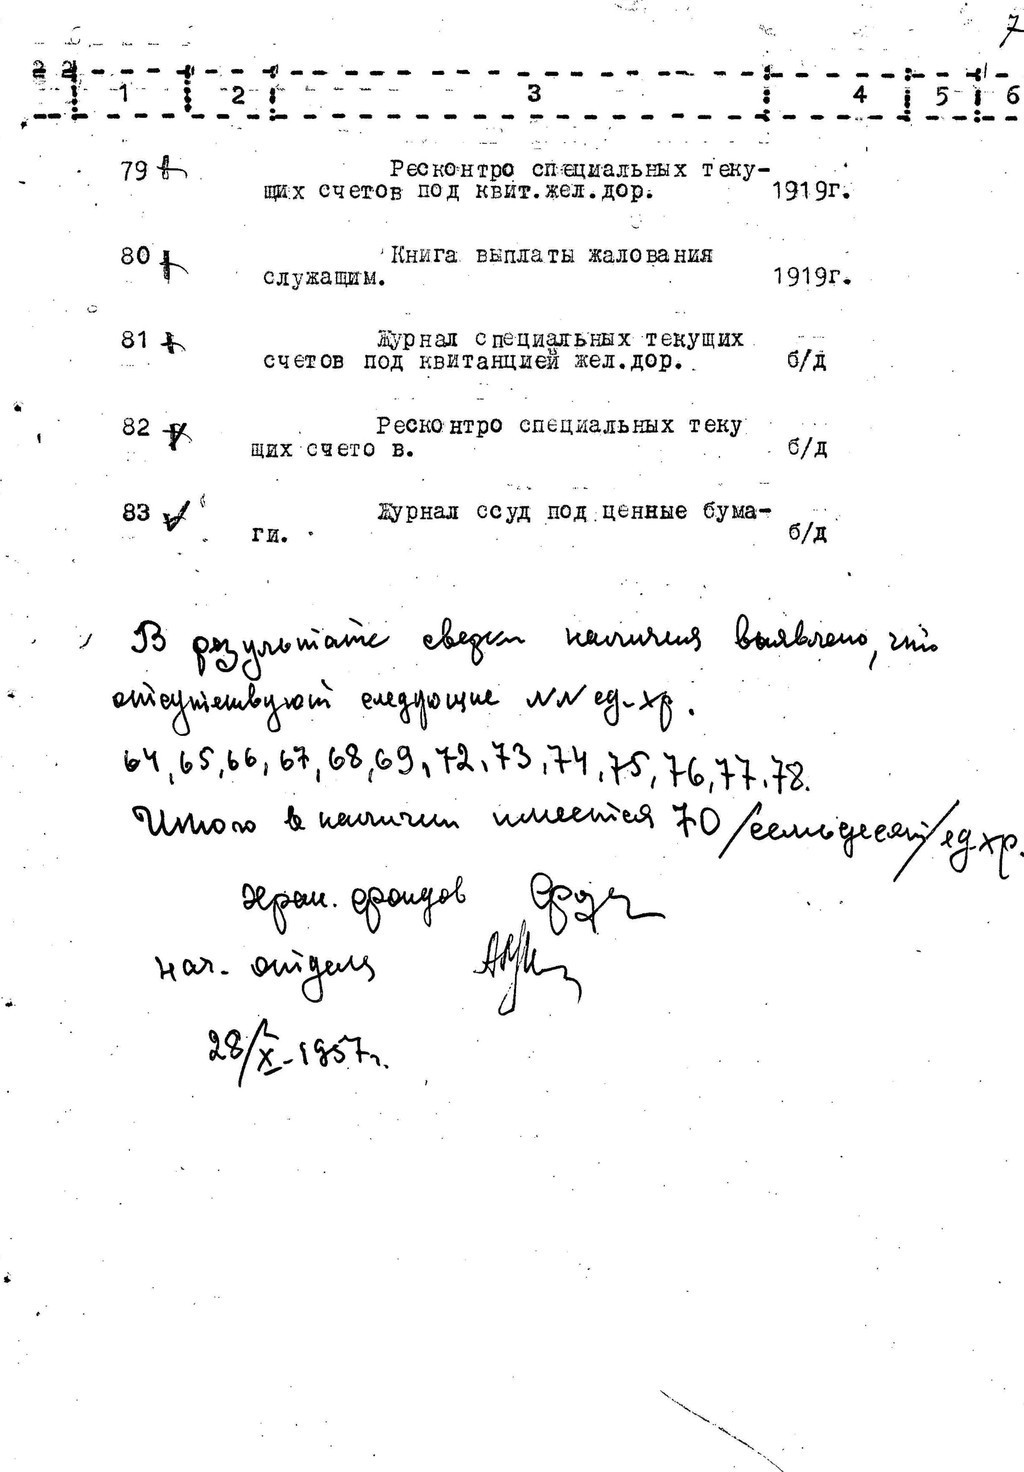 7
1 2 3 4 5 6
79 Ресконтро специальных теку-
щих счетов под квит.жел.дор. 1919г.
80 Книга выплаты жалования
служащим. 1919г.
81 Журнал специальных текущих
счетов под квитанцией жел.дор. б/д
82 Ресконтро специальных теку
щих счетов. б/д
83 Журнал ссуд под ценные бума-
ги. б/д
В результате сверки наличия выявлено, что
отсутствуют следующие NN ед-хр.
64, 65, 66, 67, 68, 69, 72, 73, 74, 75, 76, 77, 78.
Итого в наличии имеется 70 /семьдесят/ ед-хр.
Хран. фондов
нач. отдела
28/X-1957г.